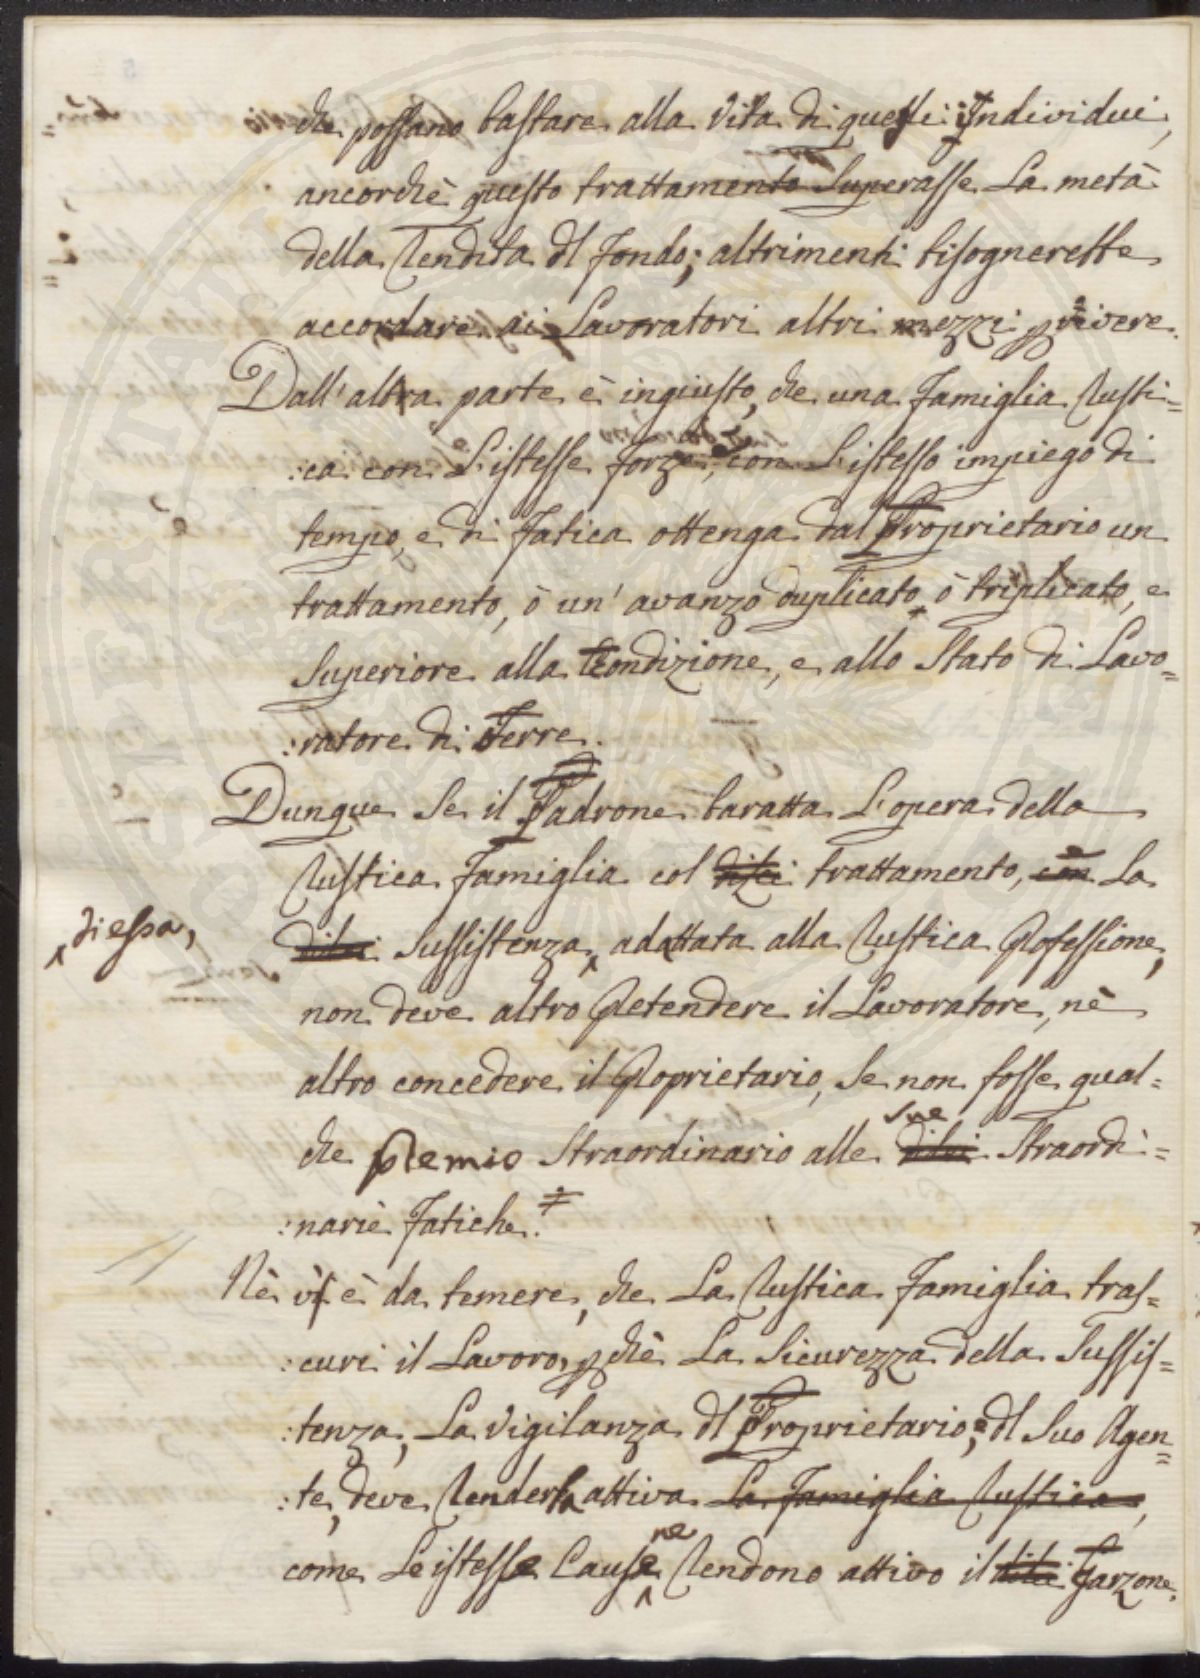 che possano bastare alla vita di questi individui,
ancorchè questo trattamento superasse la metà
della rendita dl fondo; altrimenti bisognerebbe
accordare ai Lavoratori altri mezzi p vivere.
Dall'altra parte è ingiusto, che una famiglia rusti=
:ca con l'istesse forze, con l'istesso impiego di
tempo, e di fatica ottenga dal Proprietario un
trattamento, ò un' avanzo duplicato, ò triplicato, e
superiore alla Condizione, e allo stato di Lavo=
:ratore di Terre.
Dunque se il Padrone baratta l'opera della
rustica famiglia col di lei trattamento, con la
di lei sussistenza, adattata alla rustica Professione,
di essa,
non deve altro Pretendere il Lavoratore, nè
altro concedere il Proprietario, se non fosse qual=
sue
che premio straordinario alle di lei straordi=
:narie fatiche.
Nè vi è da temere, che la rustica famiglia tras=
:curi il Lavoro, pchè la sicurezza della sussis=
:tenza, la vigilanza dl Proprietario, e dl suo Agen=
:te, deve renderla attiva la famiglia rustica,
ne
come le istesse Cause rendono attivo il di lei Garzone.